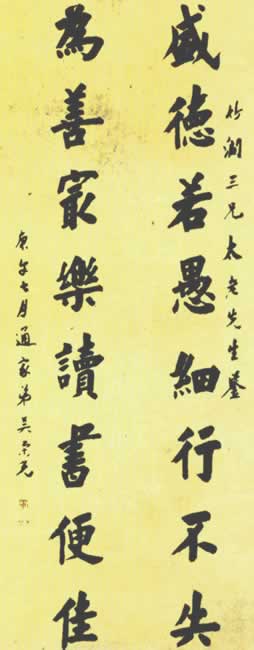 竹澗三兄太老先生鑒
盛德若愚細行不失
為善㝡樂讀書便佳
庚午七月通家弟吳榮光